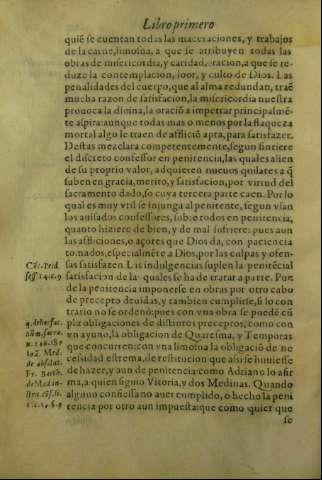 Libro primero
quiẽ se cuentan todas las maceraciones, y trabajos
de la carne, limosna, a que se atribuyen todas las
obras de misericordia, y caridad, oracion, a que se re-
duze la contemplacion, loor, y culto de Dios. Las
penalidades del cuerpo, que al alma redundan, traẽ
mucha razon de satisfacion, la misericordia nuestra
prouoca la diuina, la oraciõ a impetrar principalmẽ-
te aspira aunque todas mas o menos por la flaqueza
mortal algo le traen de aflictiõ apta, para satisfazer.
Destas mezclara competentemente, segun sintiere
el discreto confessor en penitencia, las quales alien
de su proprio valor, adquieren nueuos quilates a q̃
suben en gracia, merito, y satisfacion, por virtud del
sacramento dado, so cuya tercera parte caen. Por lo
qual es muy vtil se injunga al penitente, segun vsan
los auisados confessores, sobre todos en penitencia,
quanto hiziere de bien, y de mal sufriere: pues aun
las aflicciones, o açotes que Dios da, con paciencia
tomados, especialmẽte a Dios, por las culpas y ofen-
sas satisfazen. Las indulgencias suplen la penitẽcial
satisfacion de la quales se ha de tratar a parte. Puede
la penitencia imponerse en obras por otro cabo
de precepto deuidas, y tambien cumplirse, si lo con
trario no se ordenò: pues con vna obra se puedẽ cũ
plir obligaciones de distintos preceptos, como con
vn ayuno, la obligacion de Quaresma, y Temporas
que concurren: con vna limosna la obligaciõ de ne
cessidad estrema, de restitucion que assi se huuiesse
de hazer, y aun de penitencia como Adriano lo afir
ma, a quien siguio Vitoria, y dos Medinas. Quando
alguno confiessa no auer cumplido, o hecho la peni
tencia por otro aun impuesta: que como quier que
se
Cõc. Trid.
ses. 14. c. 9
Fr. Barth.
de Medin-